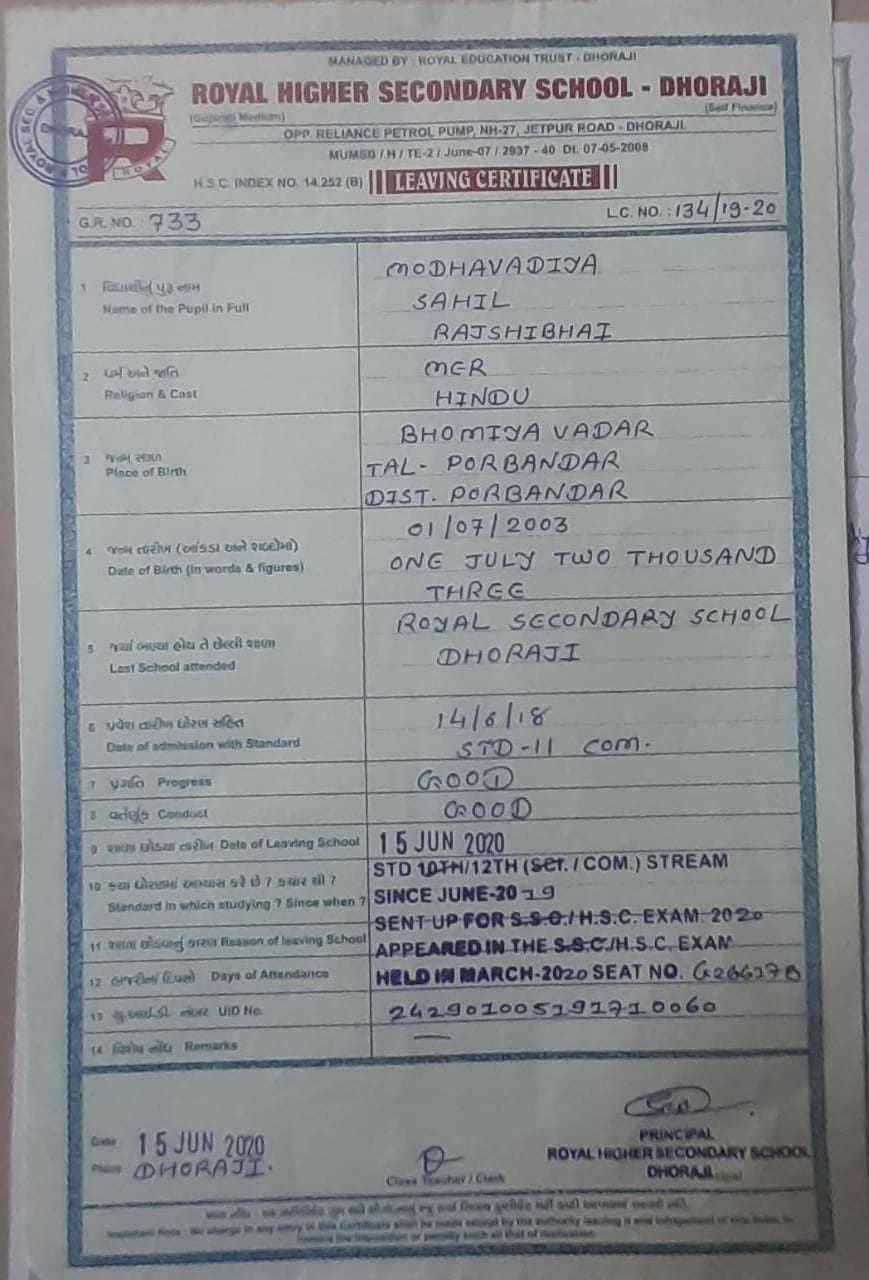 MANAGED BY : ROYAL EDUCATION TRUST - DHORAJI
ROYAL HIGHER SECONDARY SCHOOL - DHORAJI
(Gujarati Medium) (Self Finance)
OPP. RELIANCE PETROL PUMP, NH-27, JETPUR ROAD - DHORAJI.
MUMSB / H / TE-2 / June-07 / 2937 - 40 Dt. 07-05-2008
H.S.C. INDEX NO. 14.252 (B) LEAVING CERTIFICATE
G.R. NO. : 733 L.C. NO. : 134/19-20
ROYAL
DHORAJI
1 વિદ્યાર્થીનું પુરૂ નામ
Name of the Pupil in Full
MODHAVADIYA
SAHIL
RAJSHIBHAI
2 ધર્મ અને જાતિ
Religion & Cast
MER
HINDU
3 જન્મ સ્થળ
Place of Birth
BHOMIYAVADAR
TAL- PORBANDAR
DIST. PORBANDAR
4 જન્મ તારીખ (આંકડા અને શબ્દોમાં)
Date of Birth (In words & figures)
01/07/2003
ONE JULY TWO THOUSAND
THREE
5 જ્યાં ભણ્યા હોય તે છેલ્લી શાળા
Last School attended
ROYAL SECONDARY SCHOOL
DHORAJI
6 પ્રવેશ તારીખ ધોરણ સહિત
Date of admission with Standard
14/6/18
STD-11 COM.
7 પ્રગતિ Progress GOOD
8 વર્તણૂંક Conduct GOOD
9 શાળા છોડ્યા તારીખ Date of Leaving School 15 JUN 2020
10 કયા ધોરણમાં અભ્યાસ કરે છે ? ક્યાર થી ?
Standard in which studying ? Since when ?
STD 10TH/12TH (SCI. / COM.) STREAM
SINCE JUNE-2019
SENT UP FOR S.S.C./H.S.C. EXAM. 2020
11 શાળા છોડવાનું કારણ Reason of leaving School APPEARED IN THE S.S.C./H.S.C. EXAM
12 હાજરીનાં દિવસો Days of Attendance HELD IN MARCH-2020 SEAT NO. G266178
13 યુ.આઈ.ડી. નંબર UID No. 242901005191710060
14 વિશેષ નોંધ Remarks —
Date 15 JUN 2020
Place DHORAJI.
Class Teacher / Clerk
PRINCIPAL
ROYAL HIGHER SECONDARY SCHOOL
DHORAJI
Important Note : No change in any entry in this Certificate shall be made except by the authority issuing it and infringement of this